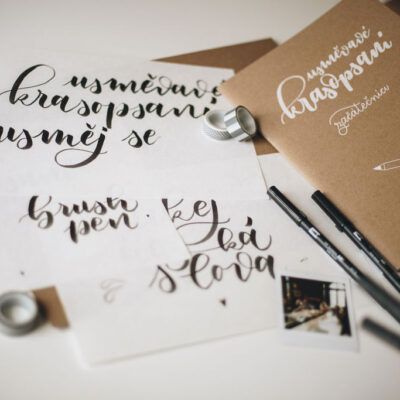 usměvavé
krasopsaní
usměj se
brush
pen
kej
ká
slova
usměvavé
krasopsaní
začátečnice